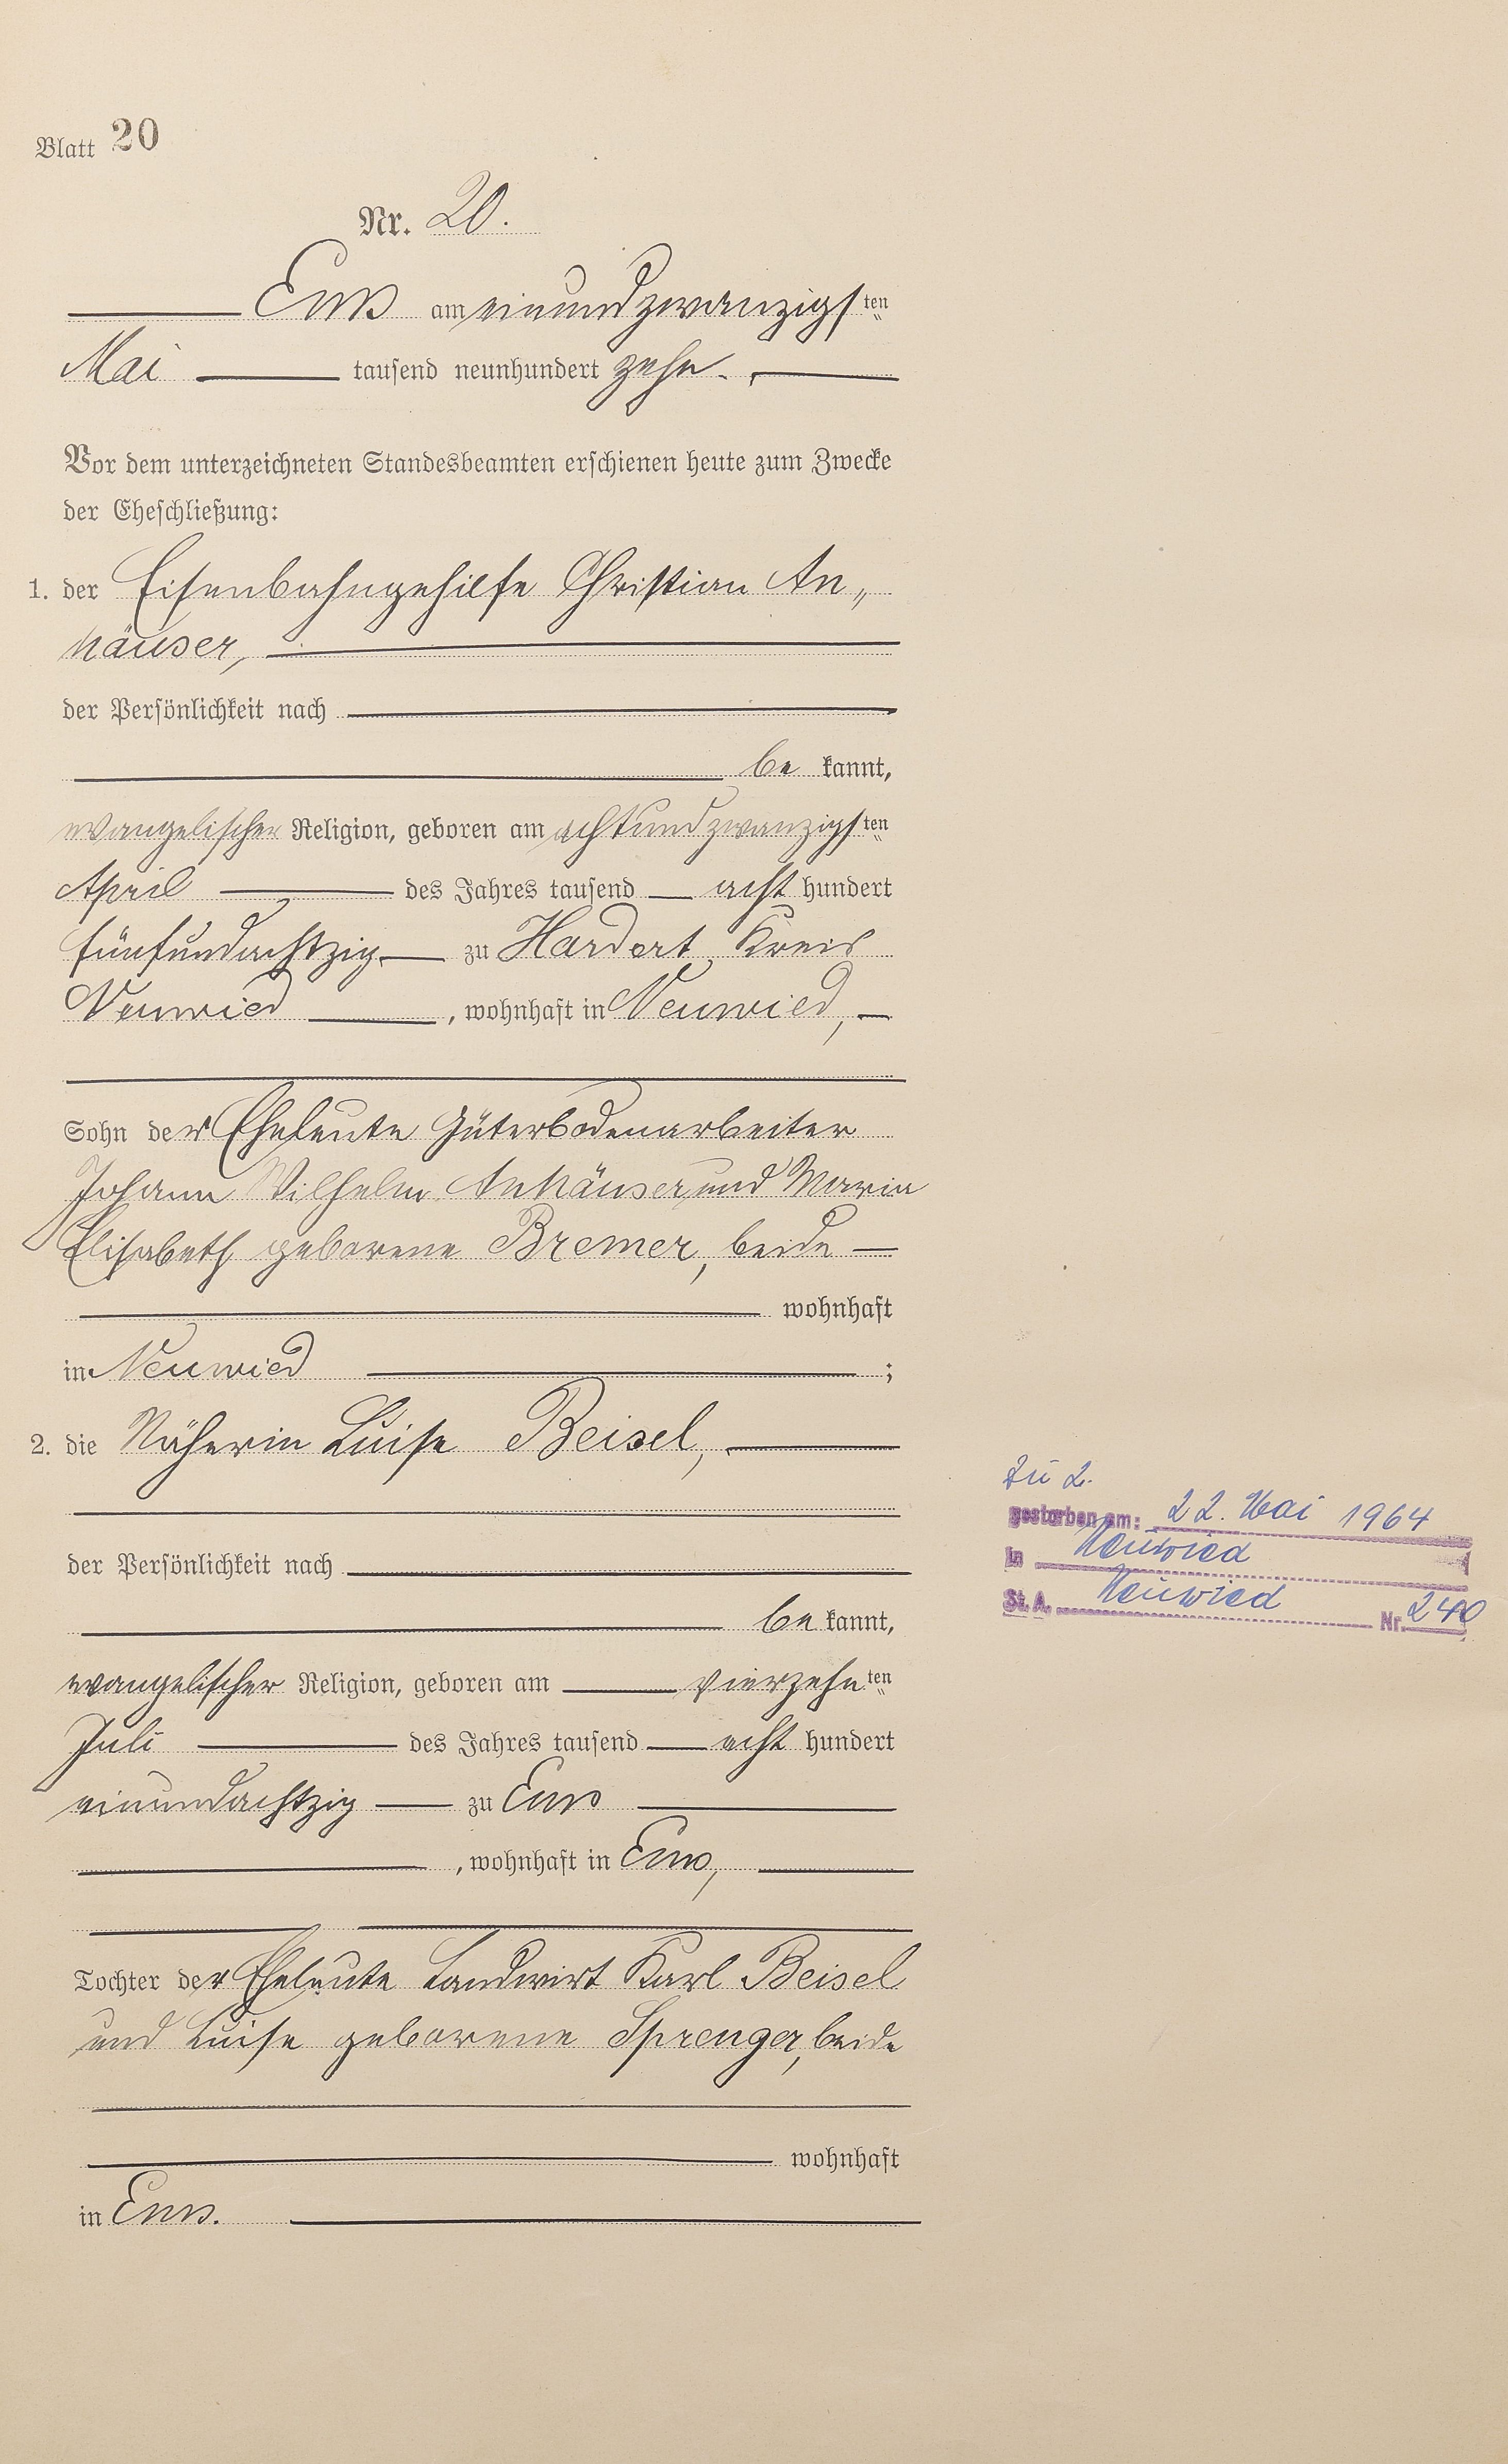 Blatt 20
Nr. 20.
Ems am einundzwanzigsten
Mai tausend neunhundert zehn.
Vor dem unterzeichneten Standesbeamten erschienen heute zum Zwecke
der Eheschließung:
1. der Eisenbahngehilfe Christian An„
häuser,
der Persönlichkeit nach
be kannt,
evangelischer Religion, geboren am achtundzwanzigsten
April des Jahres tausend acht hundert
fünfundachtzig zu Hardert, Kreis
Neuwied, wohnhaft in Neuwied,
Sohn der Eheleute Güterbodenarbeiter
Johann Wilhelm Anhäuser und Maria
Elisabeth geborene Bremer, beide
wohnhaft
in Neuwied ;
2. die Näherin Luise Beisel,
der Persönlichkeit nach
be kannt,
evangelischer Religion, geboren am vierzehnten
Juli des Jahres tausend acht hundert
einundachtzig zu Ems
, wohnhaft in Ems,
Tochter der Eheleute Landwirt Karl Beisel
und Luise geborene Sprenger, beide
wohnhaft
in Ems.
Zu 2.
gestorben am: 22. Mai 1964
in Neuwied
St. A. Neuwied Nr. 240